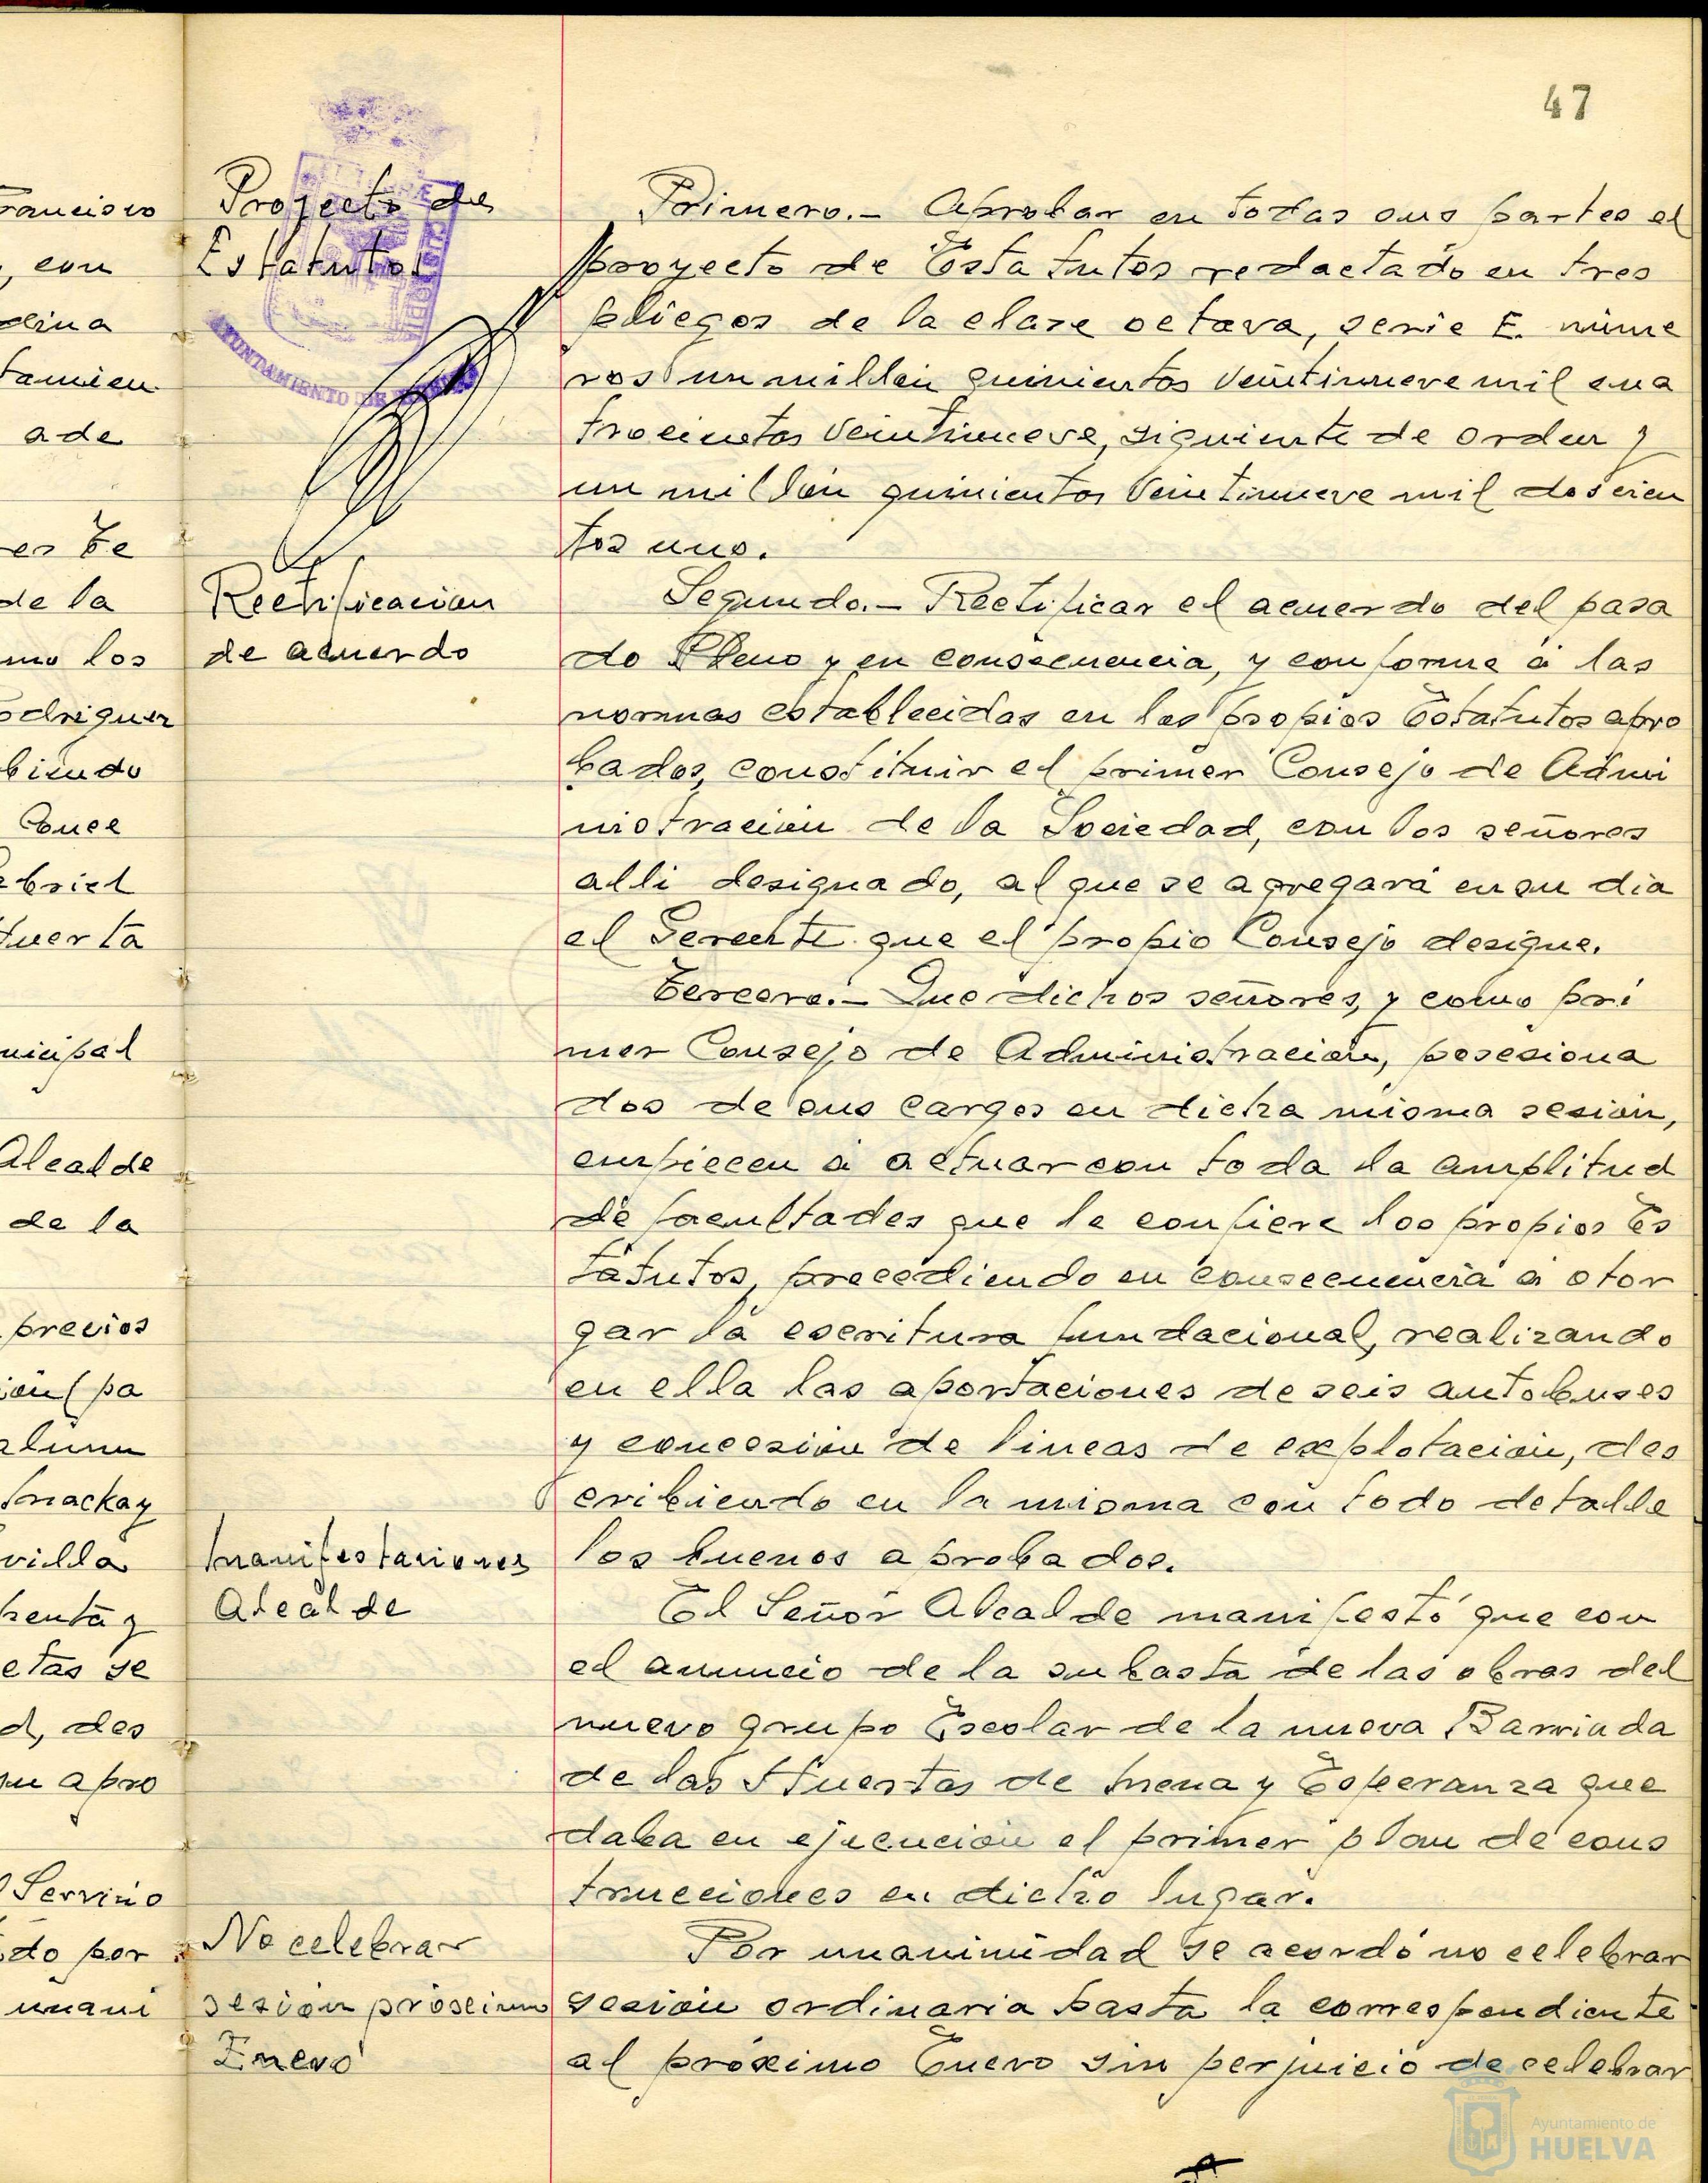 47
Francisco
, con
dina
tamien
a de
er Te
de la
mo los
odriguez
biendo
Conce
abriel
Huerta
nicipal
Alcalde
de la
previos
ión (pa
alumn
Mackay
villa
henta y
etas se
d, des
su apro
Servicio
do por
unani
Proyecto de
Estatutos
AYUNTAMIENTO DE HUELVA
Rectificacion
de acuerdo
Manifestaciones
Alcalde
No celebrar
sesion próximo
Enero
Primero.- Aprobar en todas sus partes el
proyecto de Estatutos redactado en tres
pliegos de la clase octava, serie E. núme
ros un millón quinientos veintinueve mil cua
trocientos veintinueve, siguiente de orden y
un millón quinientos veintinueve mil doscien
tos uno.
Segundo.- Rectificar el acuerdo del pasa
do Pleno y en consecuencia, y conforme á las
normas establecidas en los propios Estatutos apro
bados, constituir el primer Consejo de Admi
nistración de la Sociedad, con los señores
alli designado, al que se agregará en su dia
el Gerente que el propio Consejo designe.
Tercero.- Que dichos señores, y como pri
mer Consejo de Administración, posesiona
dos de sus cargos en dicha misma sesión,
empiecen á actuar con toda la amplitud
de facultades que le confiere los propios Es
tatutos, procediendo en consecuencia á otor
gar la escritura fundacional, realizando
en ella las aportaciones de seis autobuses
y concesión de lineas de explotación, des
cribiendo en la misma con todo detalle
los buenos aprobados.
El Señor Alcalde manifestó que con
el anuncio de la subasta de las obras del
nuevo grupo Escolar de la nueva Barriada
de las Huertas de Mena y Esperanza que
daba en ejecución el primer plan de cons
trucciones en dicho lugar.
Por unanimidad se acordó no celebrar
sesión ordinaria hasta la correspondiente
al próximo Enero sin perjuicio de celebrar
Ayuntamiento de
HUELVA